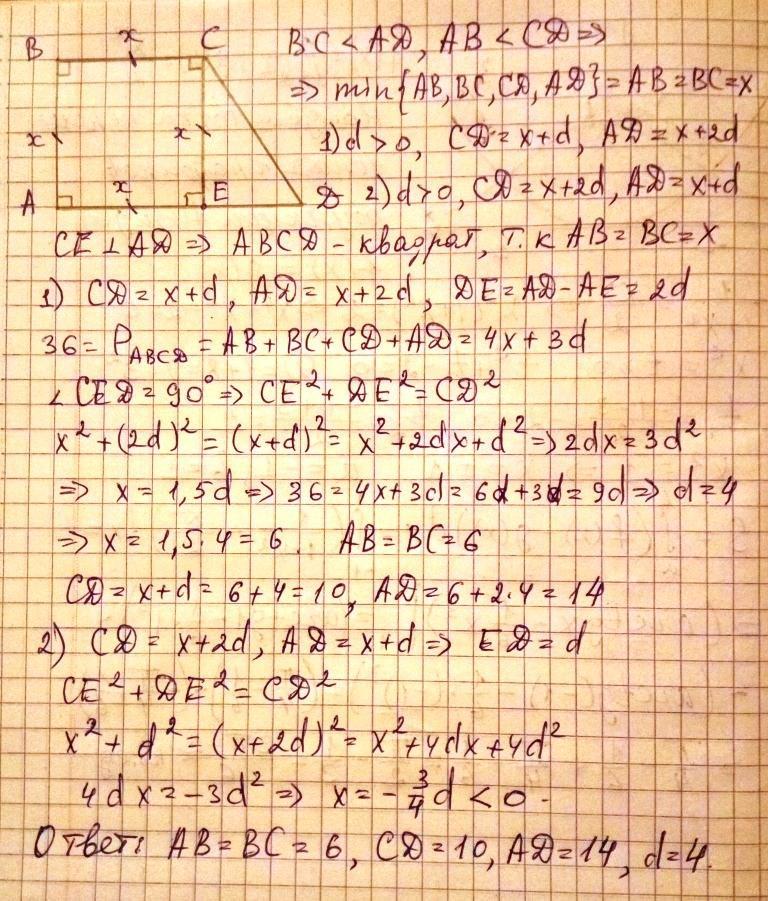 B x C B·C < AD, AB < CD ⇒
⇒ min{AB, BC, CD, AD} = AB = BC = x
x x 1) d > 0, CD = x+d, AD = x+2d
A x E D 2) d > 0, CD = x+2d, AD = x+d
CE ⊥ AD ⇒ ABCD - квадрат, т.к AB = BC = x
1) CD = x+d, AD = x+2d, DE = AD - AE = 2d
36 = P_ABCD = AB + BC + CD + AD = 4x + 3d
∠ CED = 90° ⇒ CE² + DE² = CD²
x² + (2d)² = (x+d)² = x² + 2dx + d² ⇒ 2dx = 3d²
⇒ x = 1,5d ⇒ 36 = 4x + 3d = 6d + 3d = 9d ⇒ d = 4
⇒ x = 1,5·4 = 6. AB = BC = 6
CD = x+d = 6+4 = 10, AD = 6+2·4 = 14
2) CD = x+2d, AD = x+d ⇒ ED = d
CE² + DE² = CD²
x² + d² = (x+2d)² = x² + 4dx + 4d²
4dx = -3d² ⇒ x = -3/4 d < 0.
Ответ: AB = BC = 6, CD = 10, AD = 14, d = 4.